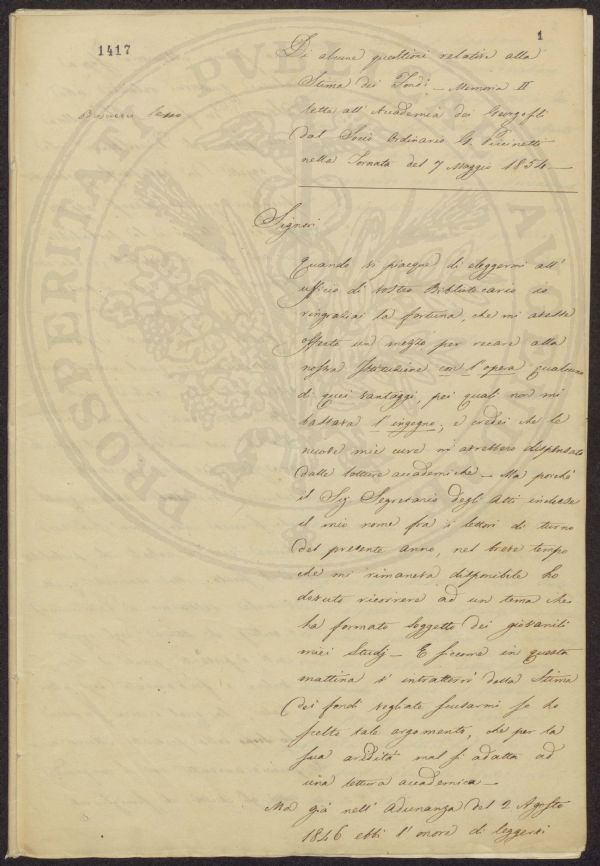 1417
1
Di alcune questioni relative alla
Stima dei Fondi _ Memoria II
letta all' Accademia dei Georgofili
dal Socio Ordinario G.
nella Tornata del 7 Maggio 1854 _
Signori
Quando vi piacque di eleggermi all'
ufficio di vostro Bibliotecario io
ringraziai la fortuna, che mi avesse
offerto un mezzo per recare alla
nostra Istituzione con l'opera qualcuno
di quei vantaggi, pei quali non mi
bastava l'ingegno; e credei che le
nuove mie cure mi avrebbero dispensato
dalle letture accademiche _ Ma poichè
il Sig Segretario degli Atti incluse
il mio nome fra i lettori di turno
del presente anno, nel breve tempo
che mi rimaneva disponibile ho
dovuto ricorrere ad un tema che
ha formato soggetto dei giovanili
miei Studj _ E siccome in questa
mattina v' intratterrò della Stima
dei fondi vogliate scusarmi se ho
scelto tale argomento, che per la
sua aridità mal si adatta ad
una lettura accademica _
Ma già nell' Adunanza del 2 Agosto
1846 ebbi l' onore di leggervi
PROSPERITATI PVBLICAE